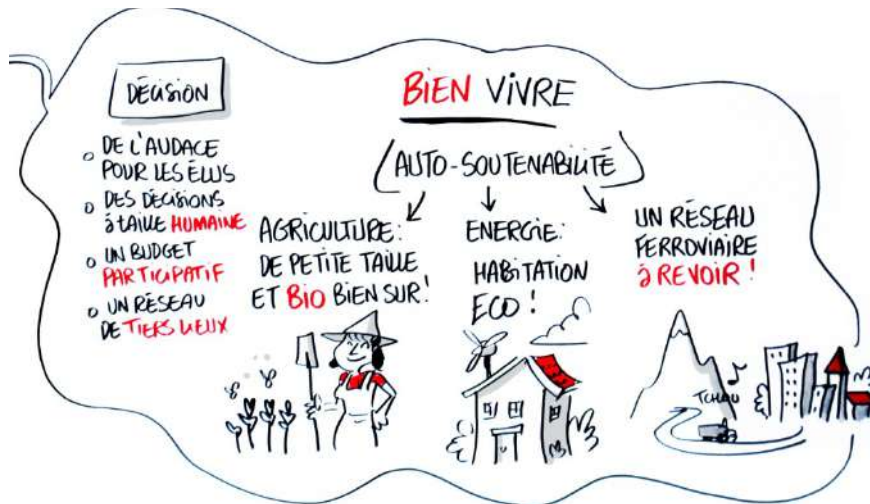 DÉCISION
○ DE L'AUDACE
POUR LES ÉLUS
○ DES DÉCISIONS
à TAILLE HUMAINE
○ UN BUDGET
PARTICIPATIF
○ UN RÉSEAU
DE TIERS LIEUX
BiEN ViVRE
AUTO-SOUTENABILITÉ
AGRICULTURE:
DE PETITE TAILLE
ET BiO BiEN SUR!
ENERGIE:
HABITATION
ECO!
UN RÉSEAU
FERROVIAIRE
à REVOIR!
TCHOU